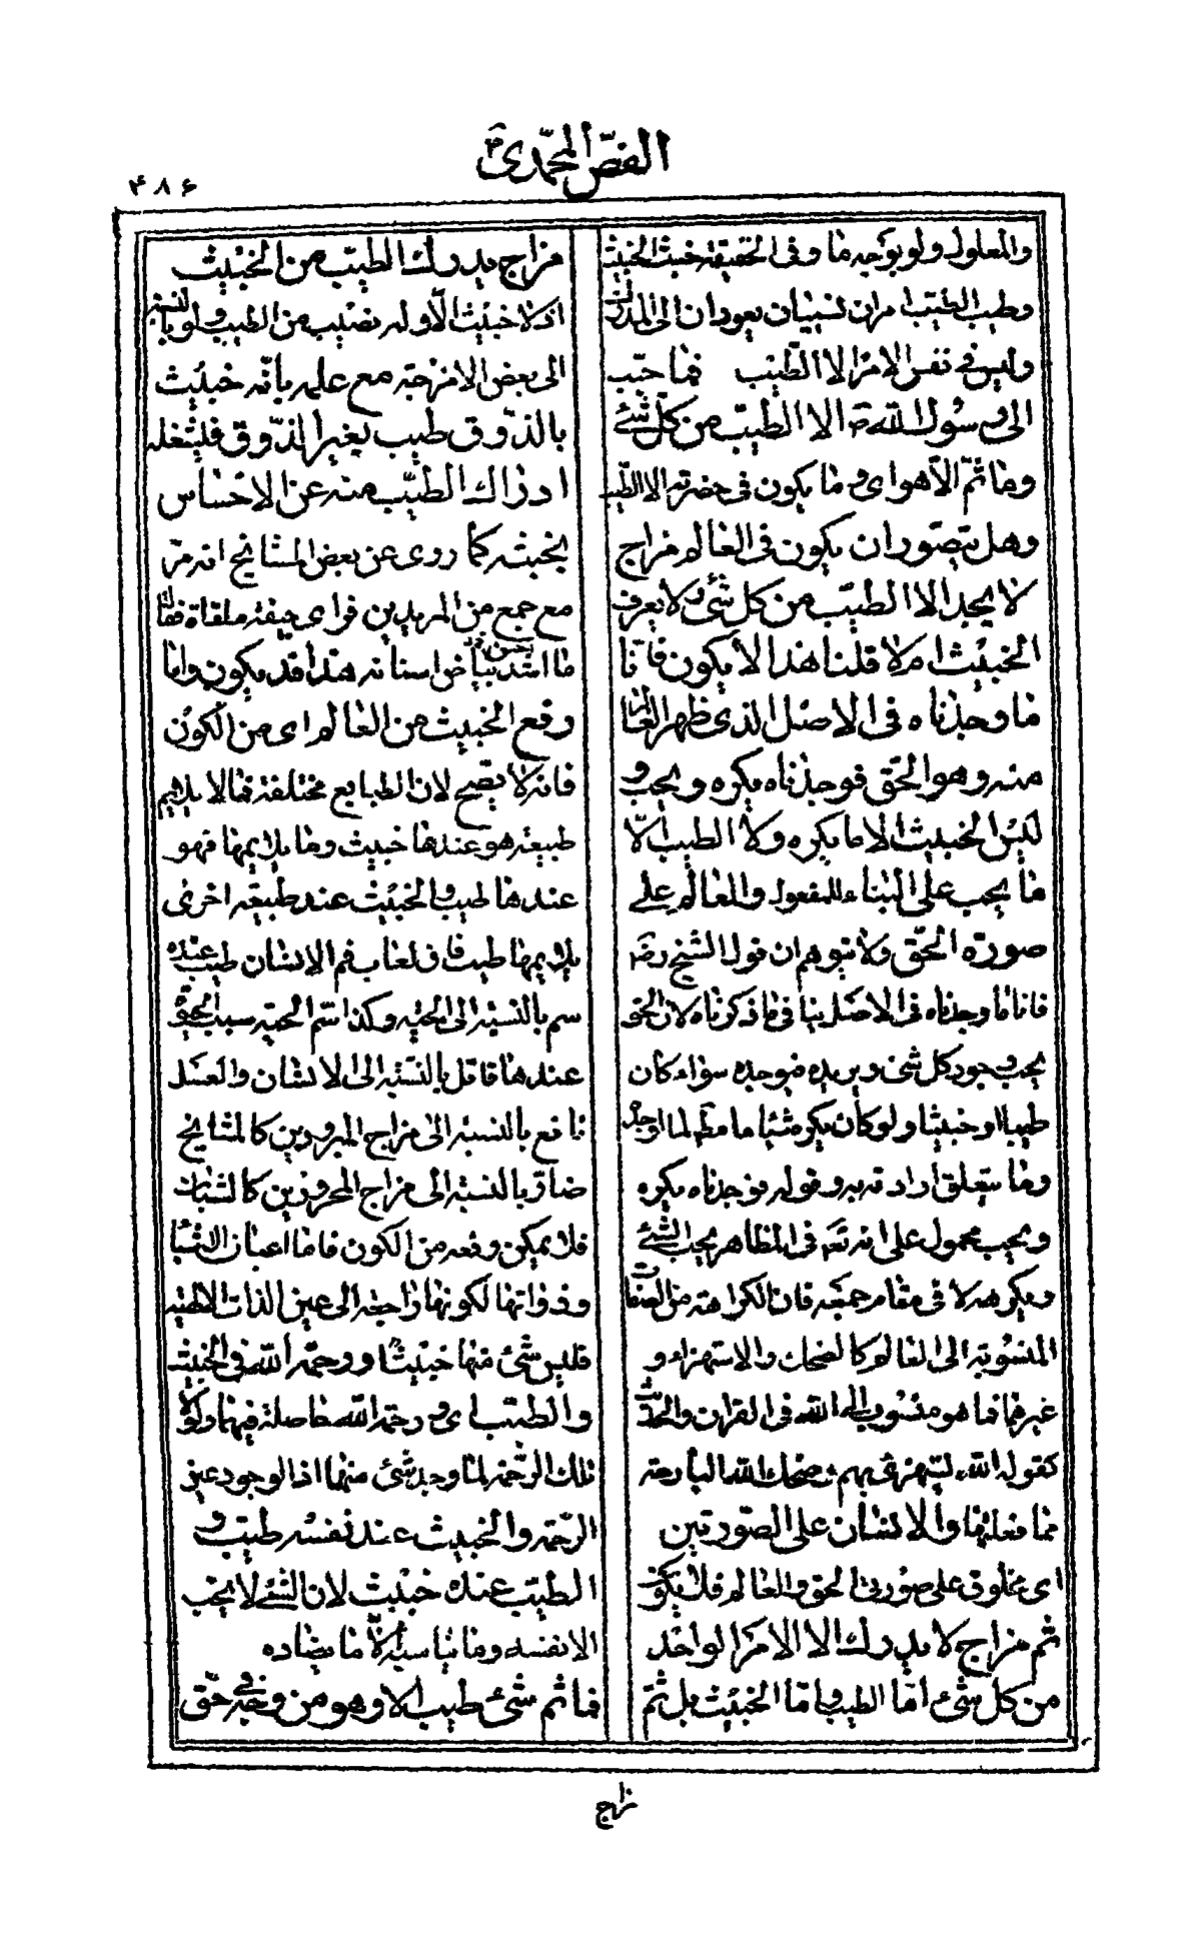 الفصّ المحمّدی
۴۸۶
والمعلول ولو بوجه ما وفى الحقيقة خبث الخبيث
وطيب الطيّب امران نسبيان يعودان الى المدرك
وليس فى نفس الامر الا الطّيب فما حبّب
الى رسول الله ص الا الطيّب من كل شئ
وما ثمّ الا هو اى وما يكون فى حضرته الا الطيّب
وهل يتصوّر ان يكون فى العالم مزاج
لا يجد الا الطيّب من كل شئ ولا يعرف
الخبيث ام لا قلنا هذا لا يكون فانا
ما وجدناه فى الاصل الذى ظهر العالم
منه وهو الحقّ فوجدناه يكره ويحب و
ليس الخبيث الا ما يكره ولا الطيب الّا
ما يحب على البناء للمفعول والعالم على
صورة الحقّ ولا يتوهم ان قول الشيخ رضه
فانا ما وجدناه فى الاصل ينافى ما ذكرناه لان الحق
يحب وجود كل شئ ويريده فيوجده سواء كان
طيبا او خبيثا ولو كان يكره شيئا ما مطلقا لما اوجده
وما يتعلق ارادته به وقوله فوجدناه يكره
ويحب محمول على انه تعه فى المظاهر يحب الشئ
ويكرهه لا فى مقام جمعه فان الكراهة من الصفات
المنسوبة الى العالم كالضحك والاستهزاء و
غيرهما مما هو منسوب الى الله فى القران والحديث
كقوله الله يستهزئ بهم وضحك الله البارحة
مما فعلتما والانسان على الصّورتين
اى مخلوق على صورتى الحق والعالم فلا يكون
ثم مزاج لا يدرك الا الامر الواحد
من كل شئ امّا الطيب وامّا الخبيث بل ثمّ
مزاج يدرك الطيّب من الخبيث
اذ لا خبيث الّا وله نصيب من الطيب ولو بالنسبة
الى بعض الامزجة مع علمه بانّه خبيث
بالذّوق طيب بغير الذّوق فيشغله
ادراك الطيّب منه عن الاحساس
بخبثه كما روى عن بعض المشائخ انه مرّ
مع جمع من المريدين فراى جيفة ملقاة فقال
ما اشدّ بياض اسنانه هذا قد يكون واما
رفع الخبيث من العالم اى من الكون
فانه لا يصح لان الطبايع مختلفة فما لا يلايم
طبيعة هو عندها خبيث وما يلايمها فهو
عندها طيب والخبيث عند طبيعة اخرى
يلايمها طيب فان لعاب فم الانسان طيب عنده
سم بالنسبة الى الحيّة وكذا سّم الحية سبب الحيوة
عندها قاتل بالنسبة الى الانسان والعسل
نافع بالنسبة الى مزاج المبرودين كالمشايخ
ضارّ بالنسبة الى مزاج المحرورين كالشبان
فلا يمكن رفعه من الكون فاما اعيان الاشياء
وذواتها لكونها راجعة الى عين الذات الالهية
فليس شئ منها خبيثا ورحمة الله فى الخبيث
والطيّب اى ورحمة الله حاصلة فيهما ولولا
تلك الرحمة لما وجد شئ منهما اذ الوجود عين
الرحمة والخبيث عند نفسه طيب و
الطيّب عنده خبيث لان الشئ لا يحب
الا نفسه وما يناسبه لا ما يضاده
فما ثم شئ طيب الا وهو من وجه فى حق
مزاج